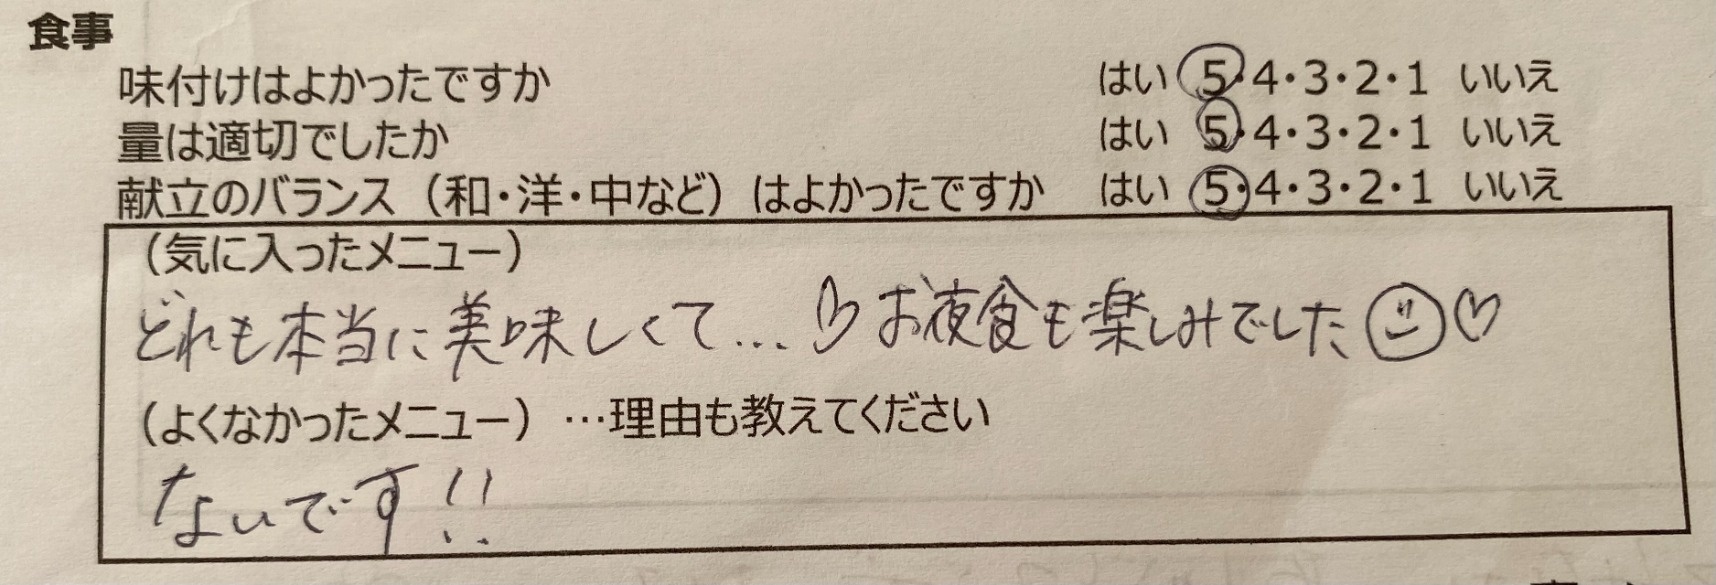 食事
味付けはよかったですか はい 5・4・3・2・1 いいえ
量は適切でしたか はい 5・4・3・2・1 いいえ
献立のバランス（和・洋・中など）はよかったですか はい 5・4・3・2・1 いいえ
（気に入ったメニュー）
どれも本当に美味しくて…♡お夜食も楽しみでした☺♡
（よくなかったメニュー）…理由も教えてください
ないです！！